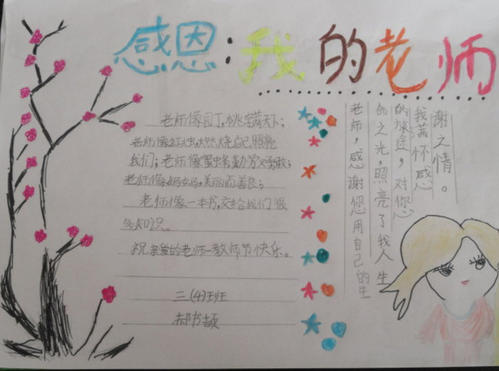 感恩:我的老师
老师像园丁,桃李满天下;
老师像红烛,燃烧自己照亮
我们;老师像蜜蜂,勤劳又勇敢;
老师像妈妈,美丽而善良;
老师像一本书,交给我们很
多知识。
祝亲爱的老师—教师节快乐。
二(4)班
郝书
老师,感谢您用自己的生
命之光,照亮了我人生
的旅途,对您
我满怀感
谢之情。